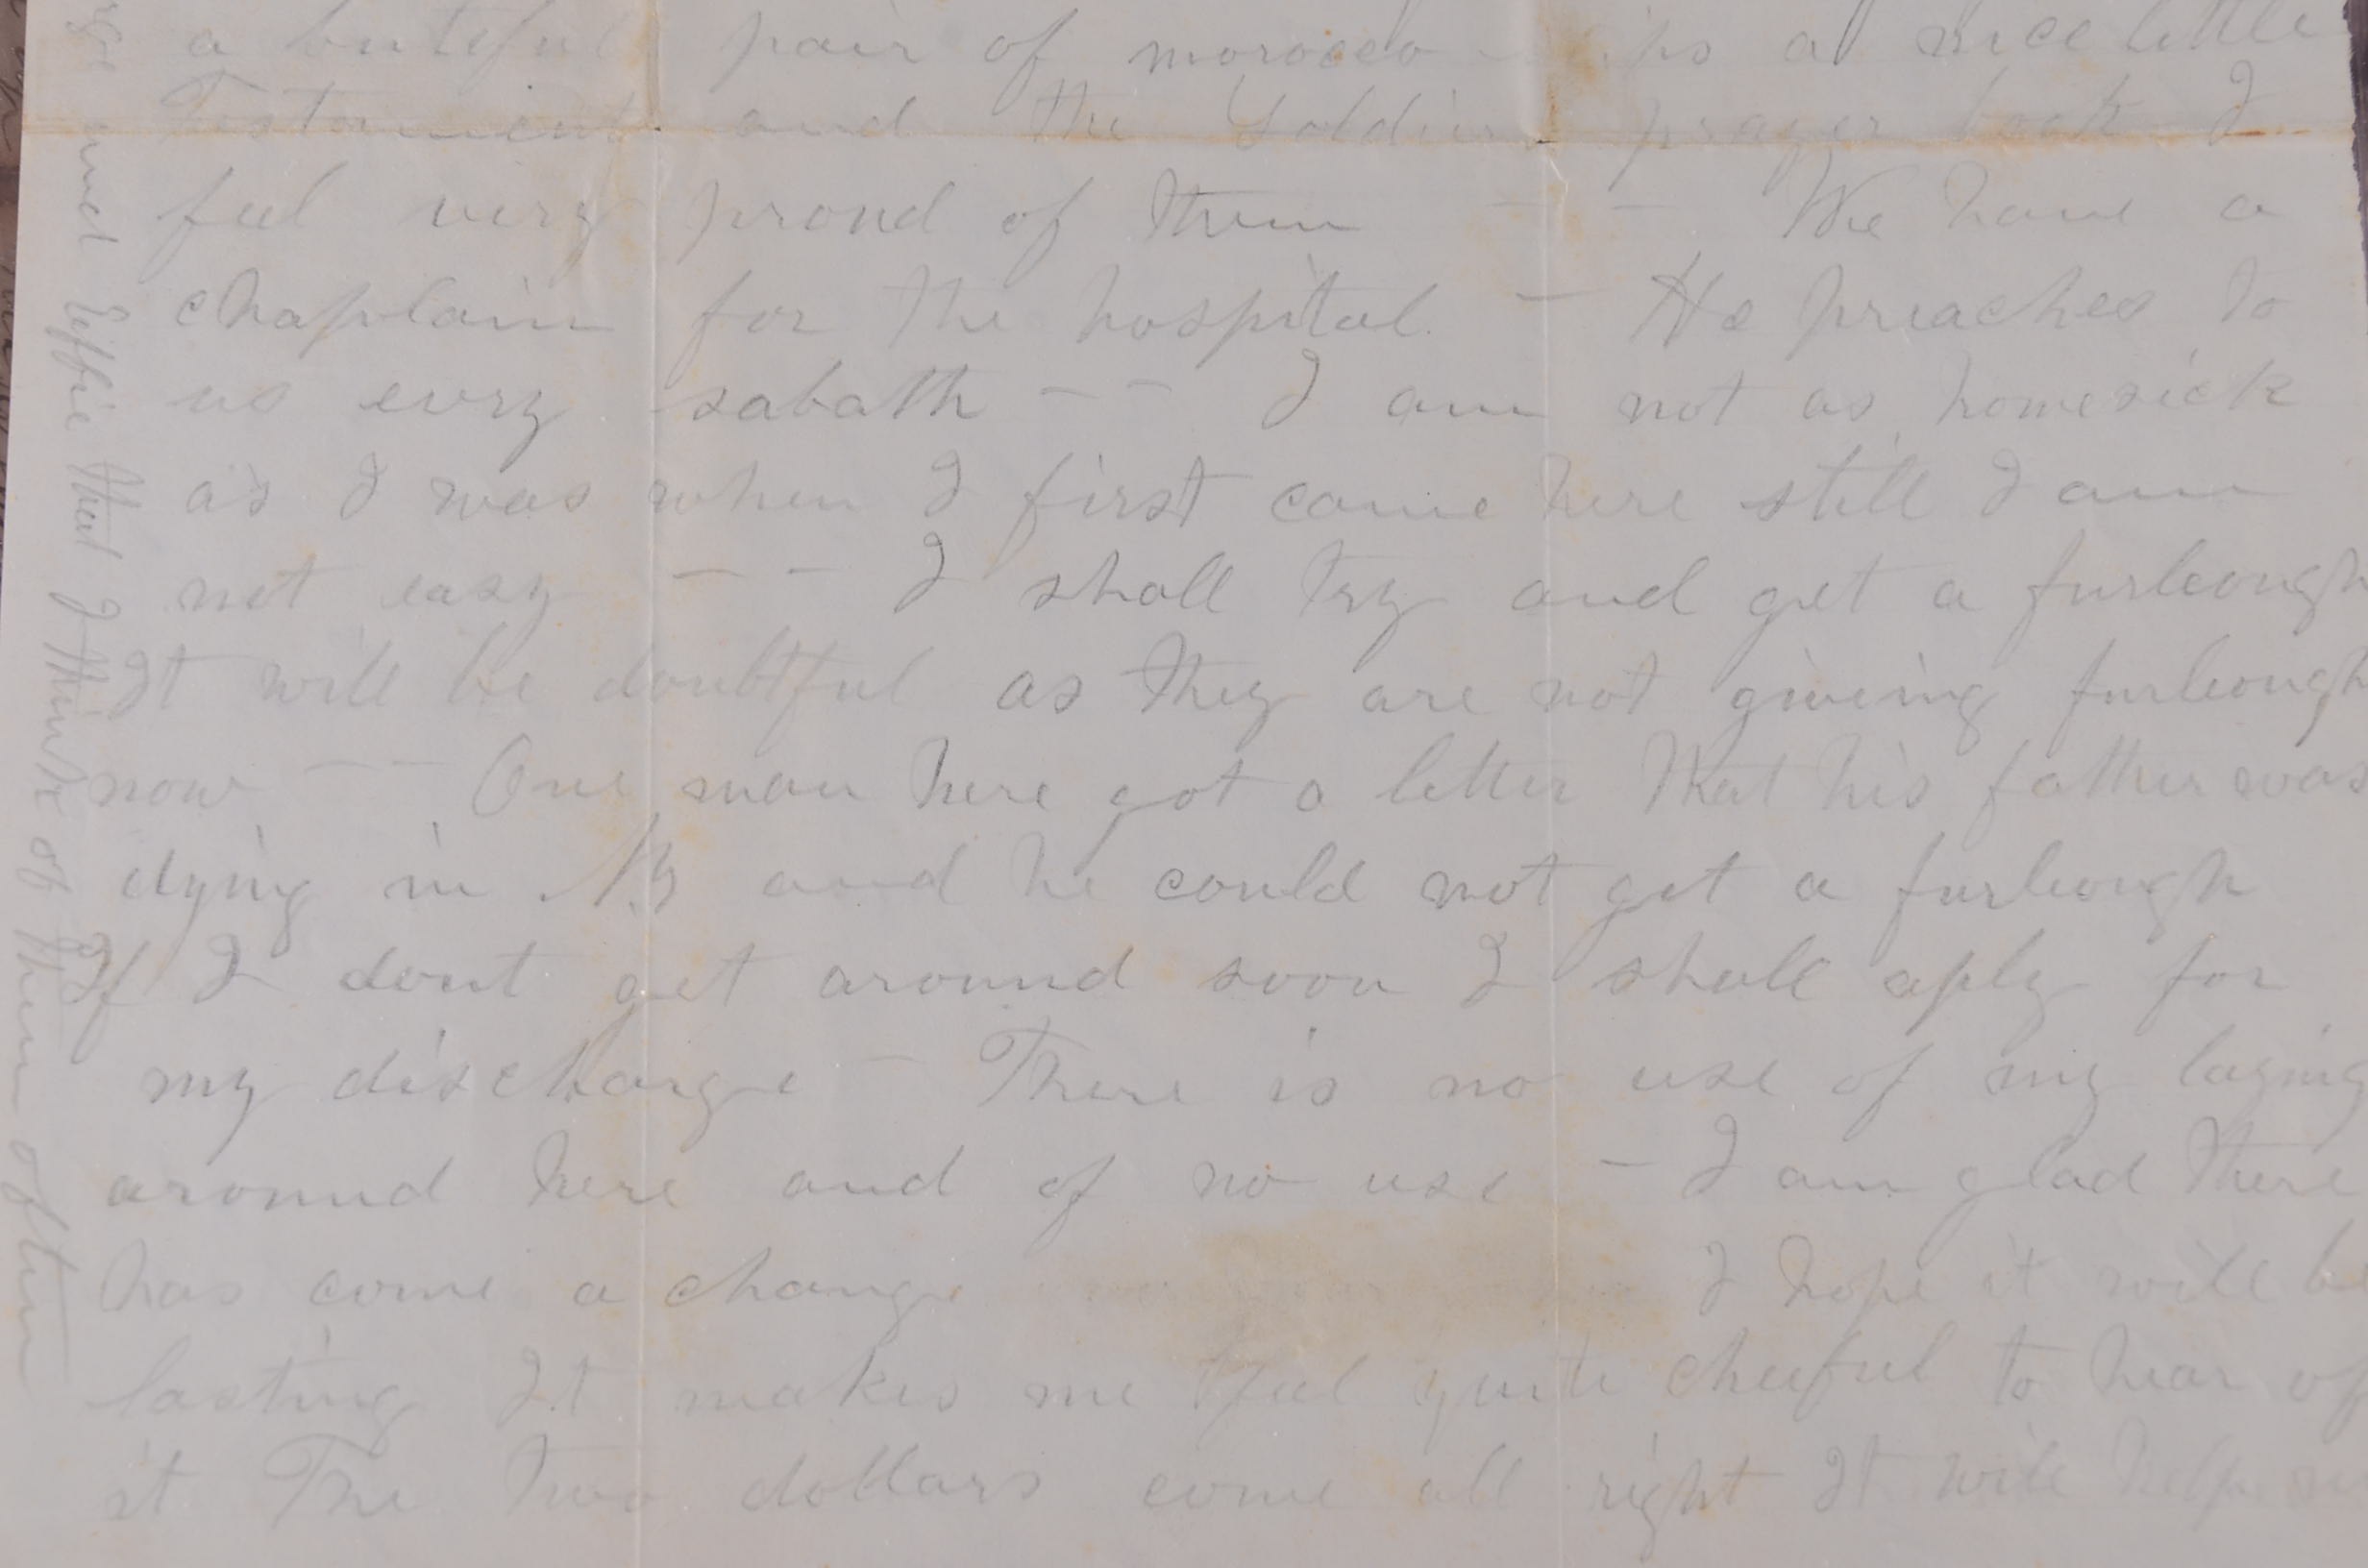 a butiful pair of morocco a nice little
Testament and the Soldiers prayer book I
feel very proud of them — — We have a
chaplain for the hospital. — He preaches to
us evry sabath — — I am not as homesick
as I was when I first come here still I am
not easy — — I shall try and get a furleough
It will be doubtful as they are not giveing furleough
now — — One man here got a letter that his father was
dying in N.Y and he could not get a furleough
If I dont get around soon I shall aply for
my discharge — There is no use of my laying
around here and of no use — I am glad there
has come a change I hope it will be
lasting It makes me feel quite cheerful to hear of
it The two dollars come all right It will help
and Effie that I think of them often